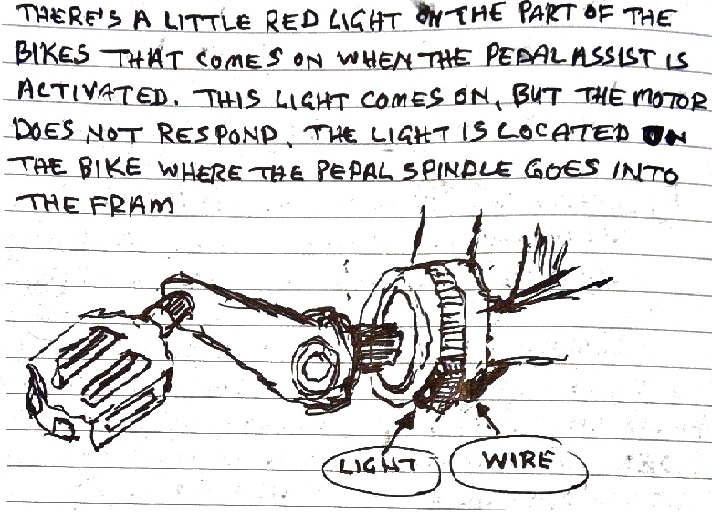 THERE'S A LITTLE RED LIGHT ON THE PART OF THE
BIKES THAT COMES ON WHEN THE PEDAL ASSIST IS
ACTIVATED. THIS LIGHT COMES ON, BUT THE MOTOR
DOES NOT RESPOND. THE LIGHT IS LOCATED ON
THE BIKE WHERE THE PEDAL SPINDLE GOES INTO
THE FRAM
LIGHT
WIRE